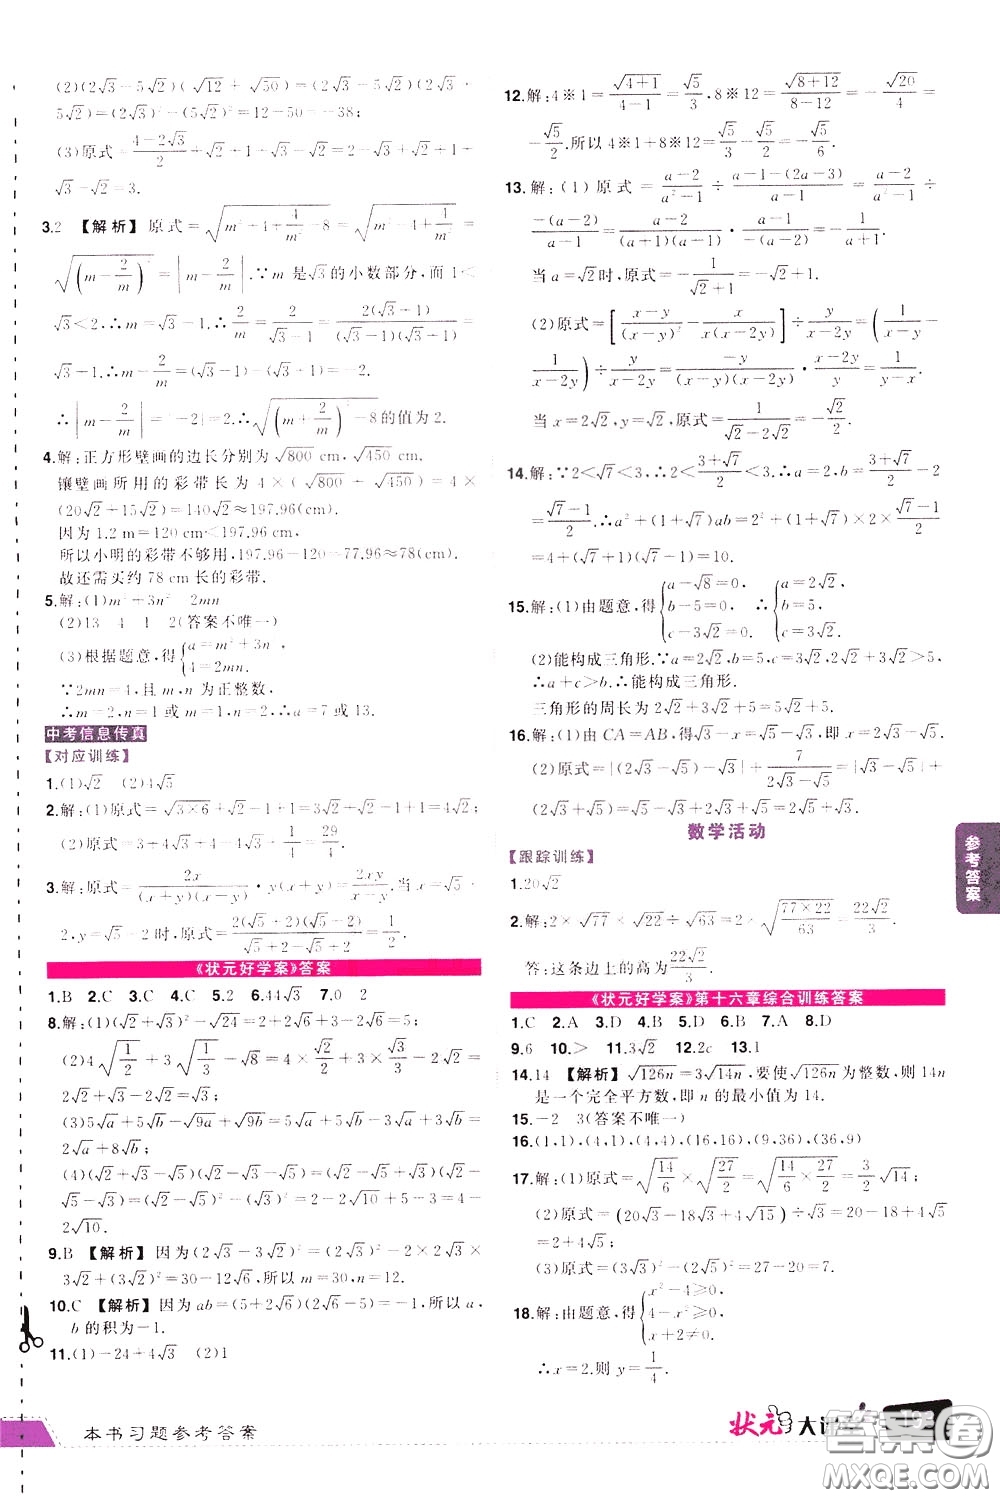 (2)(2√3−5√2)(√12+√50)=(2√3−5√2)(2√3·
5√2)=(2√3)²−(5√2)²=12−50=−38;
(3)原式=(4−2√3)/2+√2−1+√3−√2=2−√3+√2−1+
√3−√2=1.
3.2 【解析】原式=√(m²+4+4/m²−8)=√(m²−4+4/m²)=
√((m−2/m)²)=|m−2/m|.∵m是√3的小数部分,而1<
√3<2,∴m=√3−1,∴2/m=2/(√3−1)=2(√3+1)/((√3−1)(√3+1))=
√3+1,∴m−2/m=(√3−1)−(√3+1)=−2.
∴|m−2/m|=|−2|=2.∴√((m+2/m)²−8)的值为2.
4.解:正方形壁画的边长分别为√800 cm,√450 cm.
镶壁画所用的彩带长为4×(√800+√450)=4×
(20√2+15√2)=140√2≈197.96(cm).
因为1.2 m=120 cm<197.96 cm,
所以小明的彩带不够用,197.96−120=77.96≈78(cm).
故还需买约78 cm长的彩带.
5.解:(1)m²+3n² 2mn
(2)13 4 1 2(答案不唯一)
(3)根据题意,得{a=m²+3n², 4=2mn.
∵2mn=4,且m,n为正整数,
∴m=2,n=1或m=1,n=2,∴a=7或13.
中考信息传真
【对应训练】
1.(1)√2 (2)4√5
2.解:(1)原式=√(3×6)+√2−1+1=3√2+√2−1+1=4√2;
(2)原式=3+4√3−4√3+4+1/4=29/4.
3.解:原式=2x/((x+y)(x−y))·xy/1
2,y=√5−2时,原式=2(√5+2)(√5−2)/(√5+2+√5−2)
《状元好学案》答案
1.B 2.C 3.C 4.C 5.2 6.44√3 7.0 2
8.解:(1)(√2+√3)²−√24=2+2√6+3−2√6=5;
(2)4√(1/2)+3√(1/3)−√8=4×√2/2+3×√3/3−2√2=
2√2+√3−2√2=√3;
(3)5√a+5√b−√9a+√9b=5√a+5√b−3√a+3√b=
2√a+8√b;
(4)(√2+√5)²−(√5+√2)(√5−√2)=2+2√10+5−(5−2)=4+
2√10.
9.B 【解析】因为(2√3−3√2)²=(2√3)²−2×2√3×
3√2+(3√2)²=30−12√6,所以m=30,n=12.
10.C 【解析】因为ab=(5+2√6)(2√6−5)=−1,所以a,
b的积为−1.
11.(1)−24+4√3 (2)1
12.解:4※1=√(4+1)/(4−1)=√5/3,8※12=√(8+12)/(8−12)=−√20/4=
−√5/2.所以4※1+8※12=√5/3−√5/2=−√5/6.
13.解:(1)原式=(a−2)/(a²−1)÷(a−1−(2a−3))/(a−1)=(a−2)/(a²−1)÷
−(a−2)/(a−1)=(a−2)/((a+1)(a−1))·(a−1)/−(a−2)=−1/(a+1).
当a=√2时,原式=−1/(√2+1)=−√2+1.
(2)原式=[(x−y)/(x−y)²−x/(x(x−2y))]÷y/(x−2y)=(1/(x−y)−
1/(x−2y))÷y/(x−2y)=−y/((x−y)(x−2y))·(x−2y)/y=1/(y−x).
当x=2√2,y=√2,原式=1/(√2−2√2)=−√2/2.
14.解:∵2<√7<3,∴2<(3+√7)/2<3,∴a=2,b=(3+√7)/2−2
=(√7−1)/2.∴a²+(1+√7)ab=2²+(1+√7)×2×(√7−1)/2
=4+(1+√7)(√7−1)=10.
15.解:(1)由题意,得{a−√8=0, b−5=0, c−3√2=0. ∴{a=2√2, b=5, c=3√2.
(2)能构成三角形.∵a=2√2,b=5,c=3√2,2√2+3√2>5,
∴a+c>b.∴能构成三角形.
三角形的周长为2√2+3√2+5=5√2+5.
16.解:(1)由CA=AB,得√5−x=3√2−√5,即x=2√5−3√2.
(2)原式=
(2√5+3√2)
数学活动
【跟踪训练】
1.20√2
2.解:2×√77×√22÷√63=2×√((77×22)/63)=22√2/3.
答:这条边上的高为22√2/3.
《状元好学案》第十六章综合训练答案
1.C 2.A 3.D 4.B 5.D 6.B 7.A 8.D
9.6 10.> 11.3√2 12.2c 13.1
14.14 【解析】√126n=3√14n,要使√126n为整数,则14n
是一个完全平方数,即n的最小值为14.
15.−2 3(答案不唯一)
16.(1,1),(4,1),(4,4),(16,16),(9,36),(36,9)
17.解:(1)原式=√(14/6)×√(27/2)=√(14/6×27/2)=3/2√14;
(2)原式=(20√3−18√3+4√15)÷√3=20−18+4√5
=2+4√5;
(3)原式=(3√3)²−(2√5)²=27−20=7.
18.解:由题意,得{x²−4≥0, 4−x²≥0, x+2≠0.
∴x=2.则y=1/4.
参考答案
本书习题参考答案
状元大课堂
答案圈
MXQE.COM